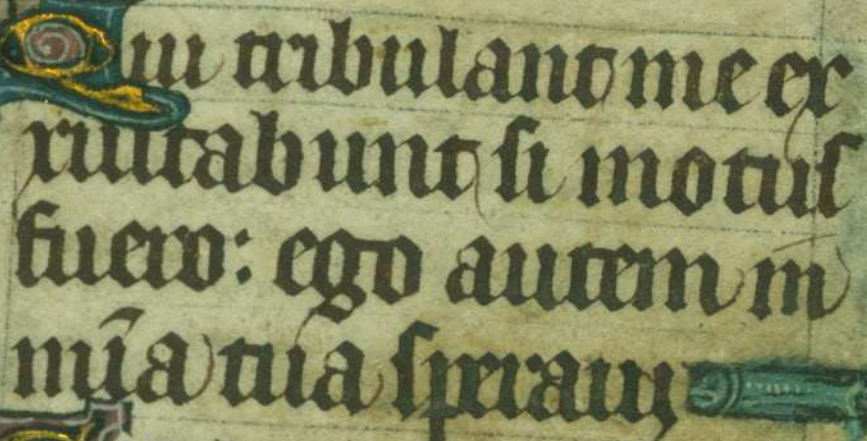 Qui tribulant me ex
xultabunt si motus
fuero: ego autem in
mia tua speraui